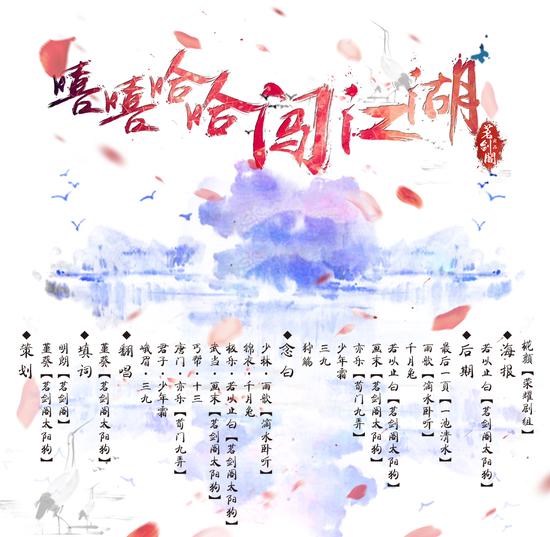 嘻嘻哈哈闯江湖
茗剑阁
◆策划
堇葵【茗剑阁太阳狗】
明朗【茗剑阁】
◆填词
堇葵【茗剑阁太阳狗】
◆翻唱
峨眉·三九
君子·少年霜
唐门·亦乐【苟门九弄】
丐帮·十三
武当·画末【茗剑阁太阳狗】
极乐·若以止白【茗剑阁太阳狗】
锦衣·千月兔
少林·雨歌【滴水卧听】
◆念白
三九
少年霜
亦乐【苟门九弄】
画末【茗剑阁太阳狗】
若以止白【茗剑阁太阳狗】
千月兔
雨歌【滴水卧听】
最后一頁【一池清水】
◆后期
若以止白【茗剑阁太阳狗】
◆海报
【荣耀剧组】